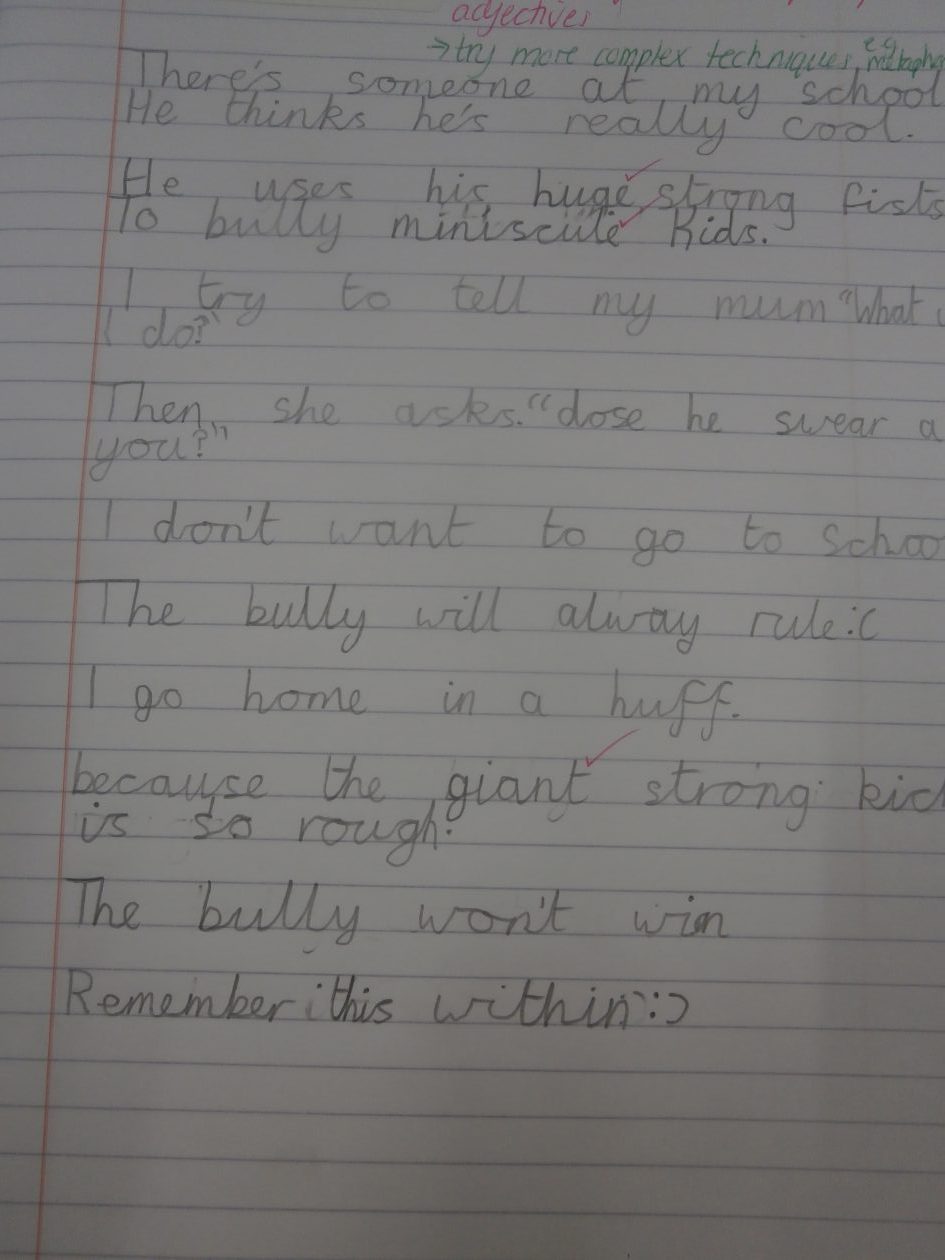 adjectives
→ try more complex techniques, e.g
There's someone at my school
He thinks he's really cool.
He uses his huge, strong fists
To bully miniscule kids.
I try to tell my mum "What
I do?"
Then she asks. "dose he swear a
you?"
I don't want to go to schoo
The bully will alway rule :(
I go home in a huff.
because the giant strong kid
is so rough.
The bully won't win
Remember this within :)